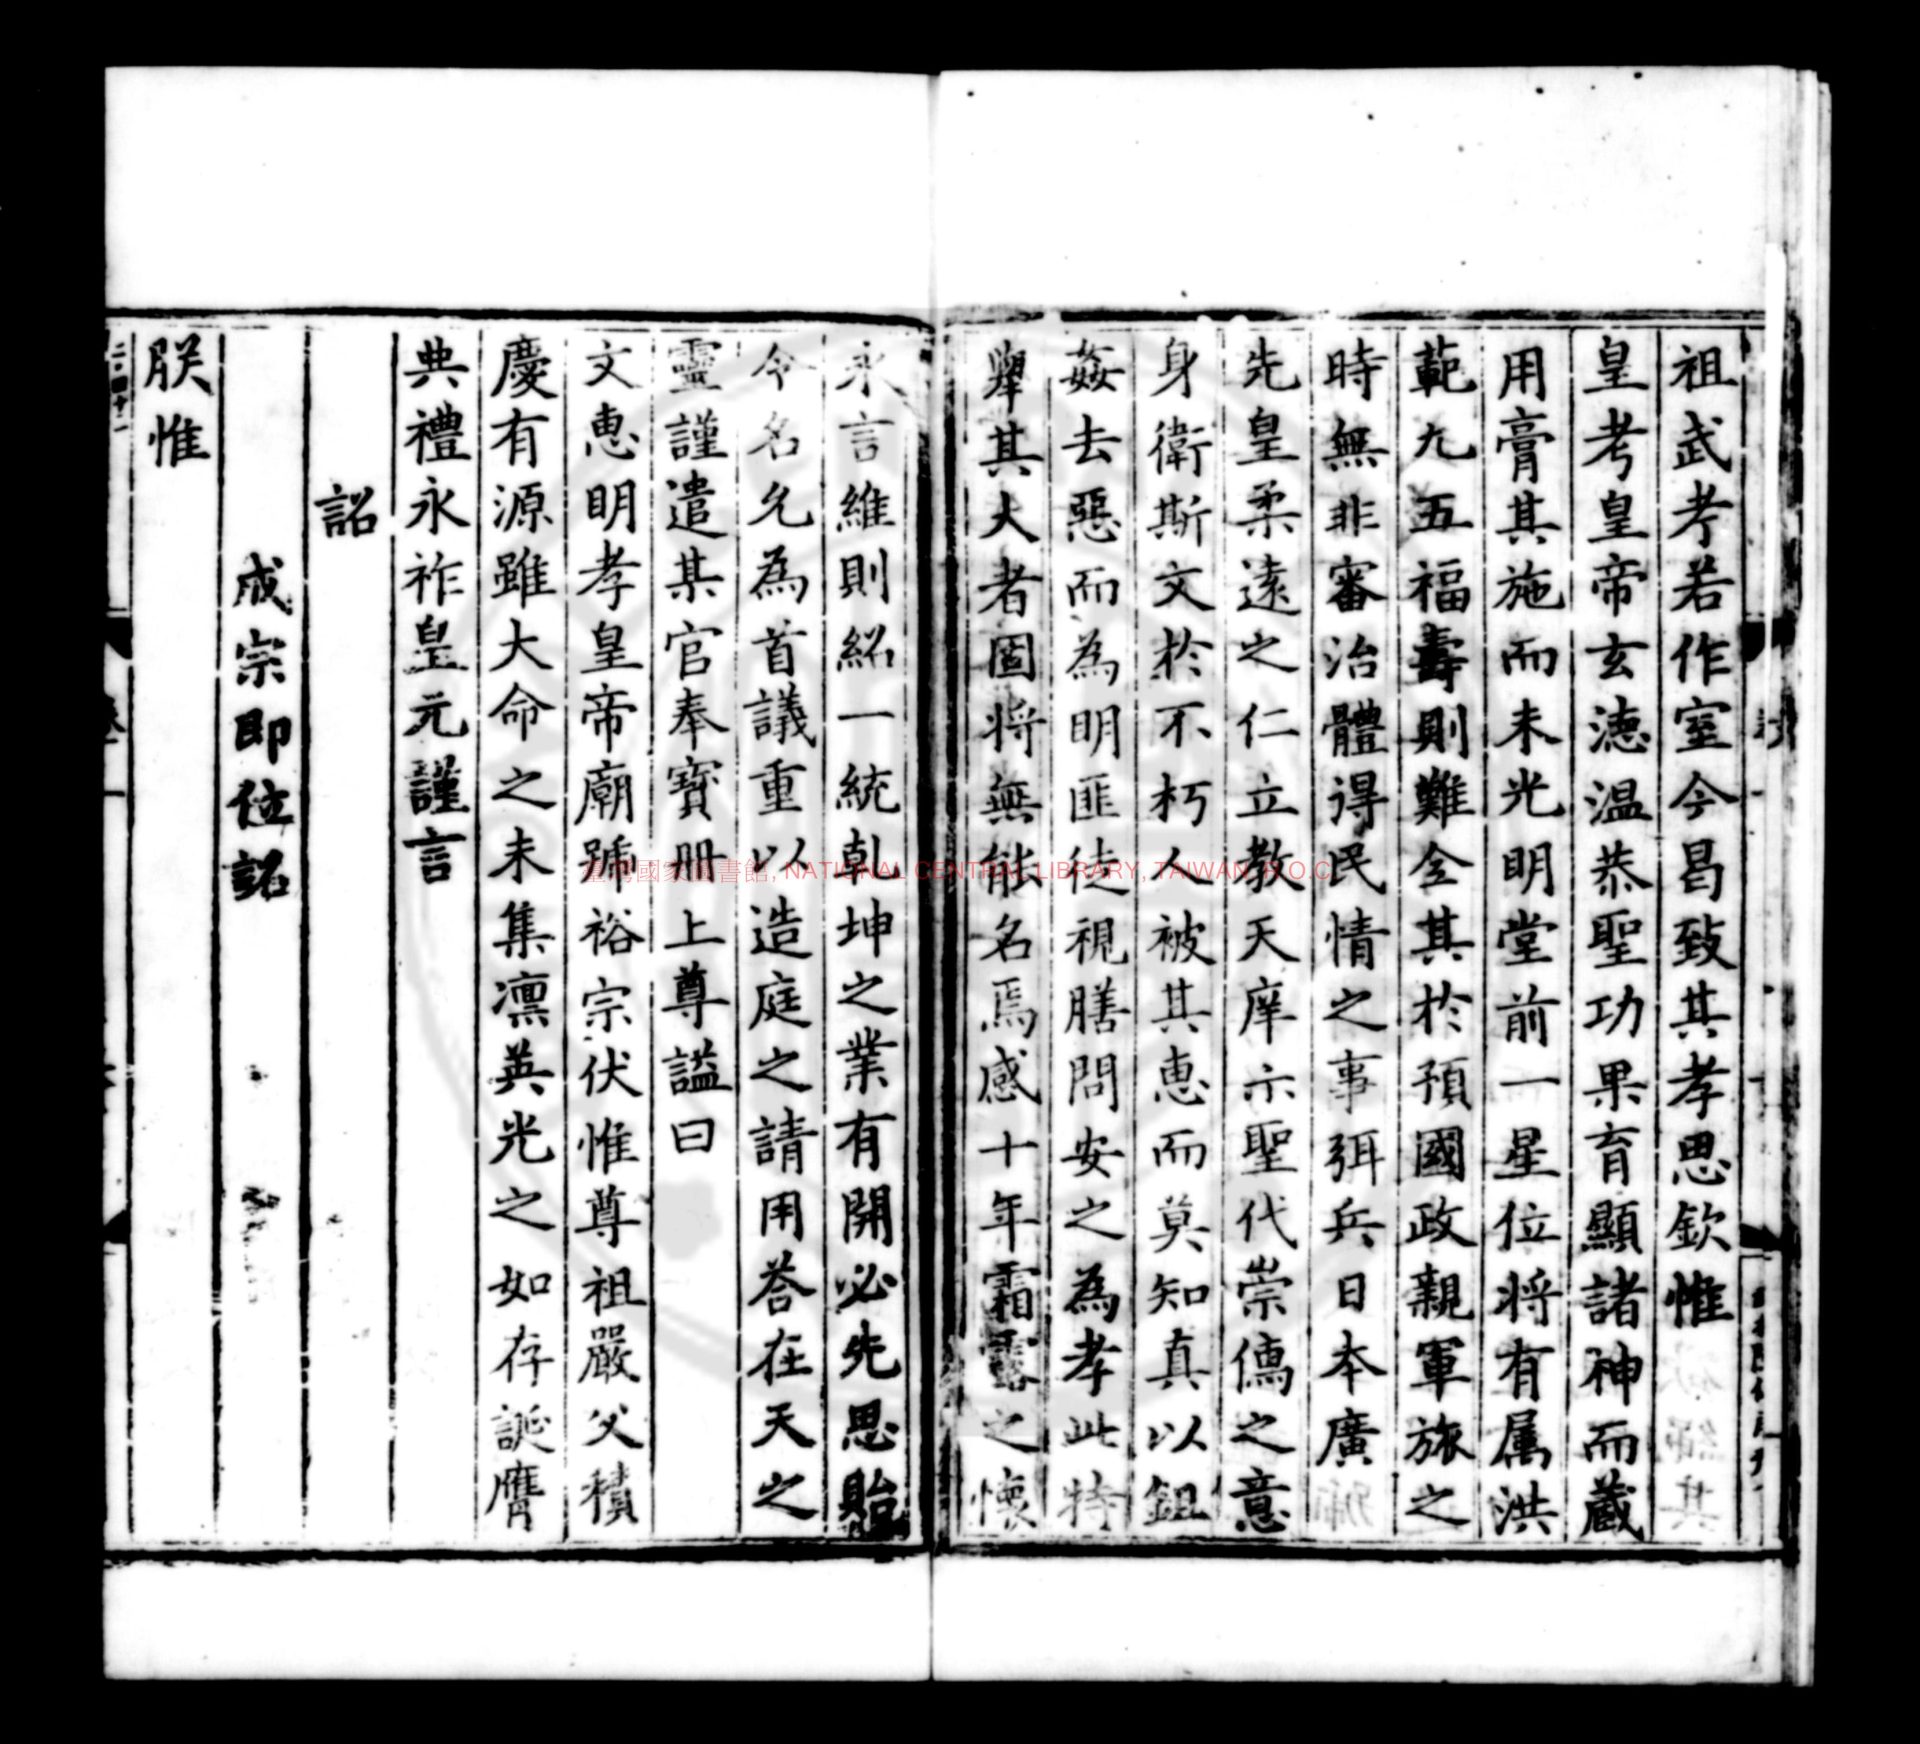 祖武考若作室今昌致其孝思欽惟
皇考皇帝玄德温恭聖功果育顯諸神而蔵
用膏其施而未光明堂前一星位將有属洪
範九五福壽則難全其於預國政親軍旅之
時無非審治體得民情之事弭兵日本廣
先皇柔遠之仁立教天庠示聖代崇儒之意
身衛斯文於不朽人被其恵而莫知真以鉏
姦去惡而為明匪徒視膳問安之為孝此特
舉其大者固將無能名焉感十年霜露之懷
永言維則紹一統乾坤之業有開必先思貽
令名允為首議重以造庭之請用荅在天之
靈謹遣某官奉寶冊上尊謚曰
文恵明孝皇帝廟號裕宗伏惟尊祖嚴父積
慶有源雖大命之未集凛英光之如存誕膺
典禮永祚皇元謹言
詔
成宗即位詔
朕惟
臺灣國家圖書館, NATIONAL CENTRAL LIBRARY, TAIWAN, R.O.C